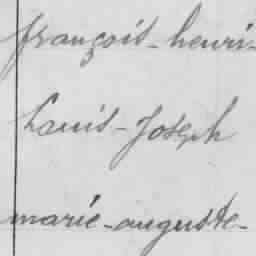 françois-henri-
Louis-Joseph
marie-auguste-